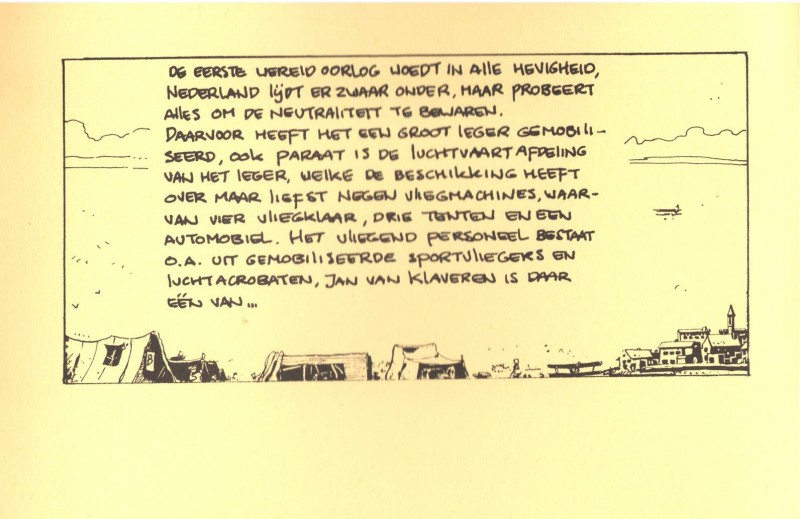 DE EERSTE WERELDOORLOG WOEDT IN ALLE HEVIGHEID,
NEDERLAND LIJDT ER ZWAAR ONDER, MAAR PROBEERT
ALLES OM DE NEUTRALITEIT TE BEWAREN.
DAARVOOR HEEFT HET EEN GROOT LEGER GEMOBILI-
SEERD, OOK PARAAT IS DE LUCHTVAART AFDELING
VAN HET LEGER, WELKE DE BESCHIKKING HEEFT
OVER MAAR LIEFST NEGEN VLIEGMACHINES, WAAR-
VAN VIER VLIEGKLAAR, DRIE TENTEN EN EEN
AUTOMOBIEL. HET VLIEGEND PERSONEEL BESTAAT
O.A. UIT GEMOBILISEERDE SPORTVLIEGERS EN
LUCHTACROBATEN, JAN VAN KLAVEREN IS DAAR
ÉÉN VAN...
8